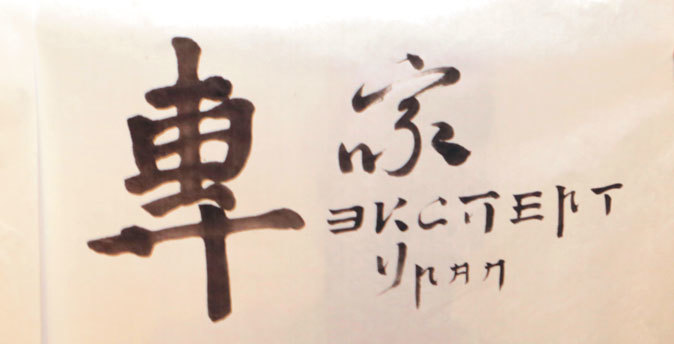 車家
ЭКСПЕРТ
Урал